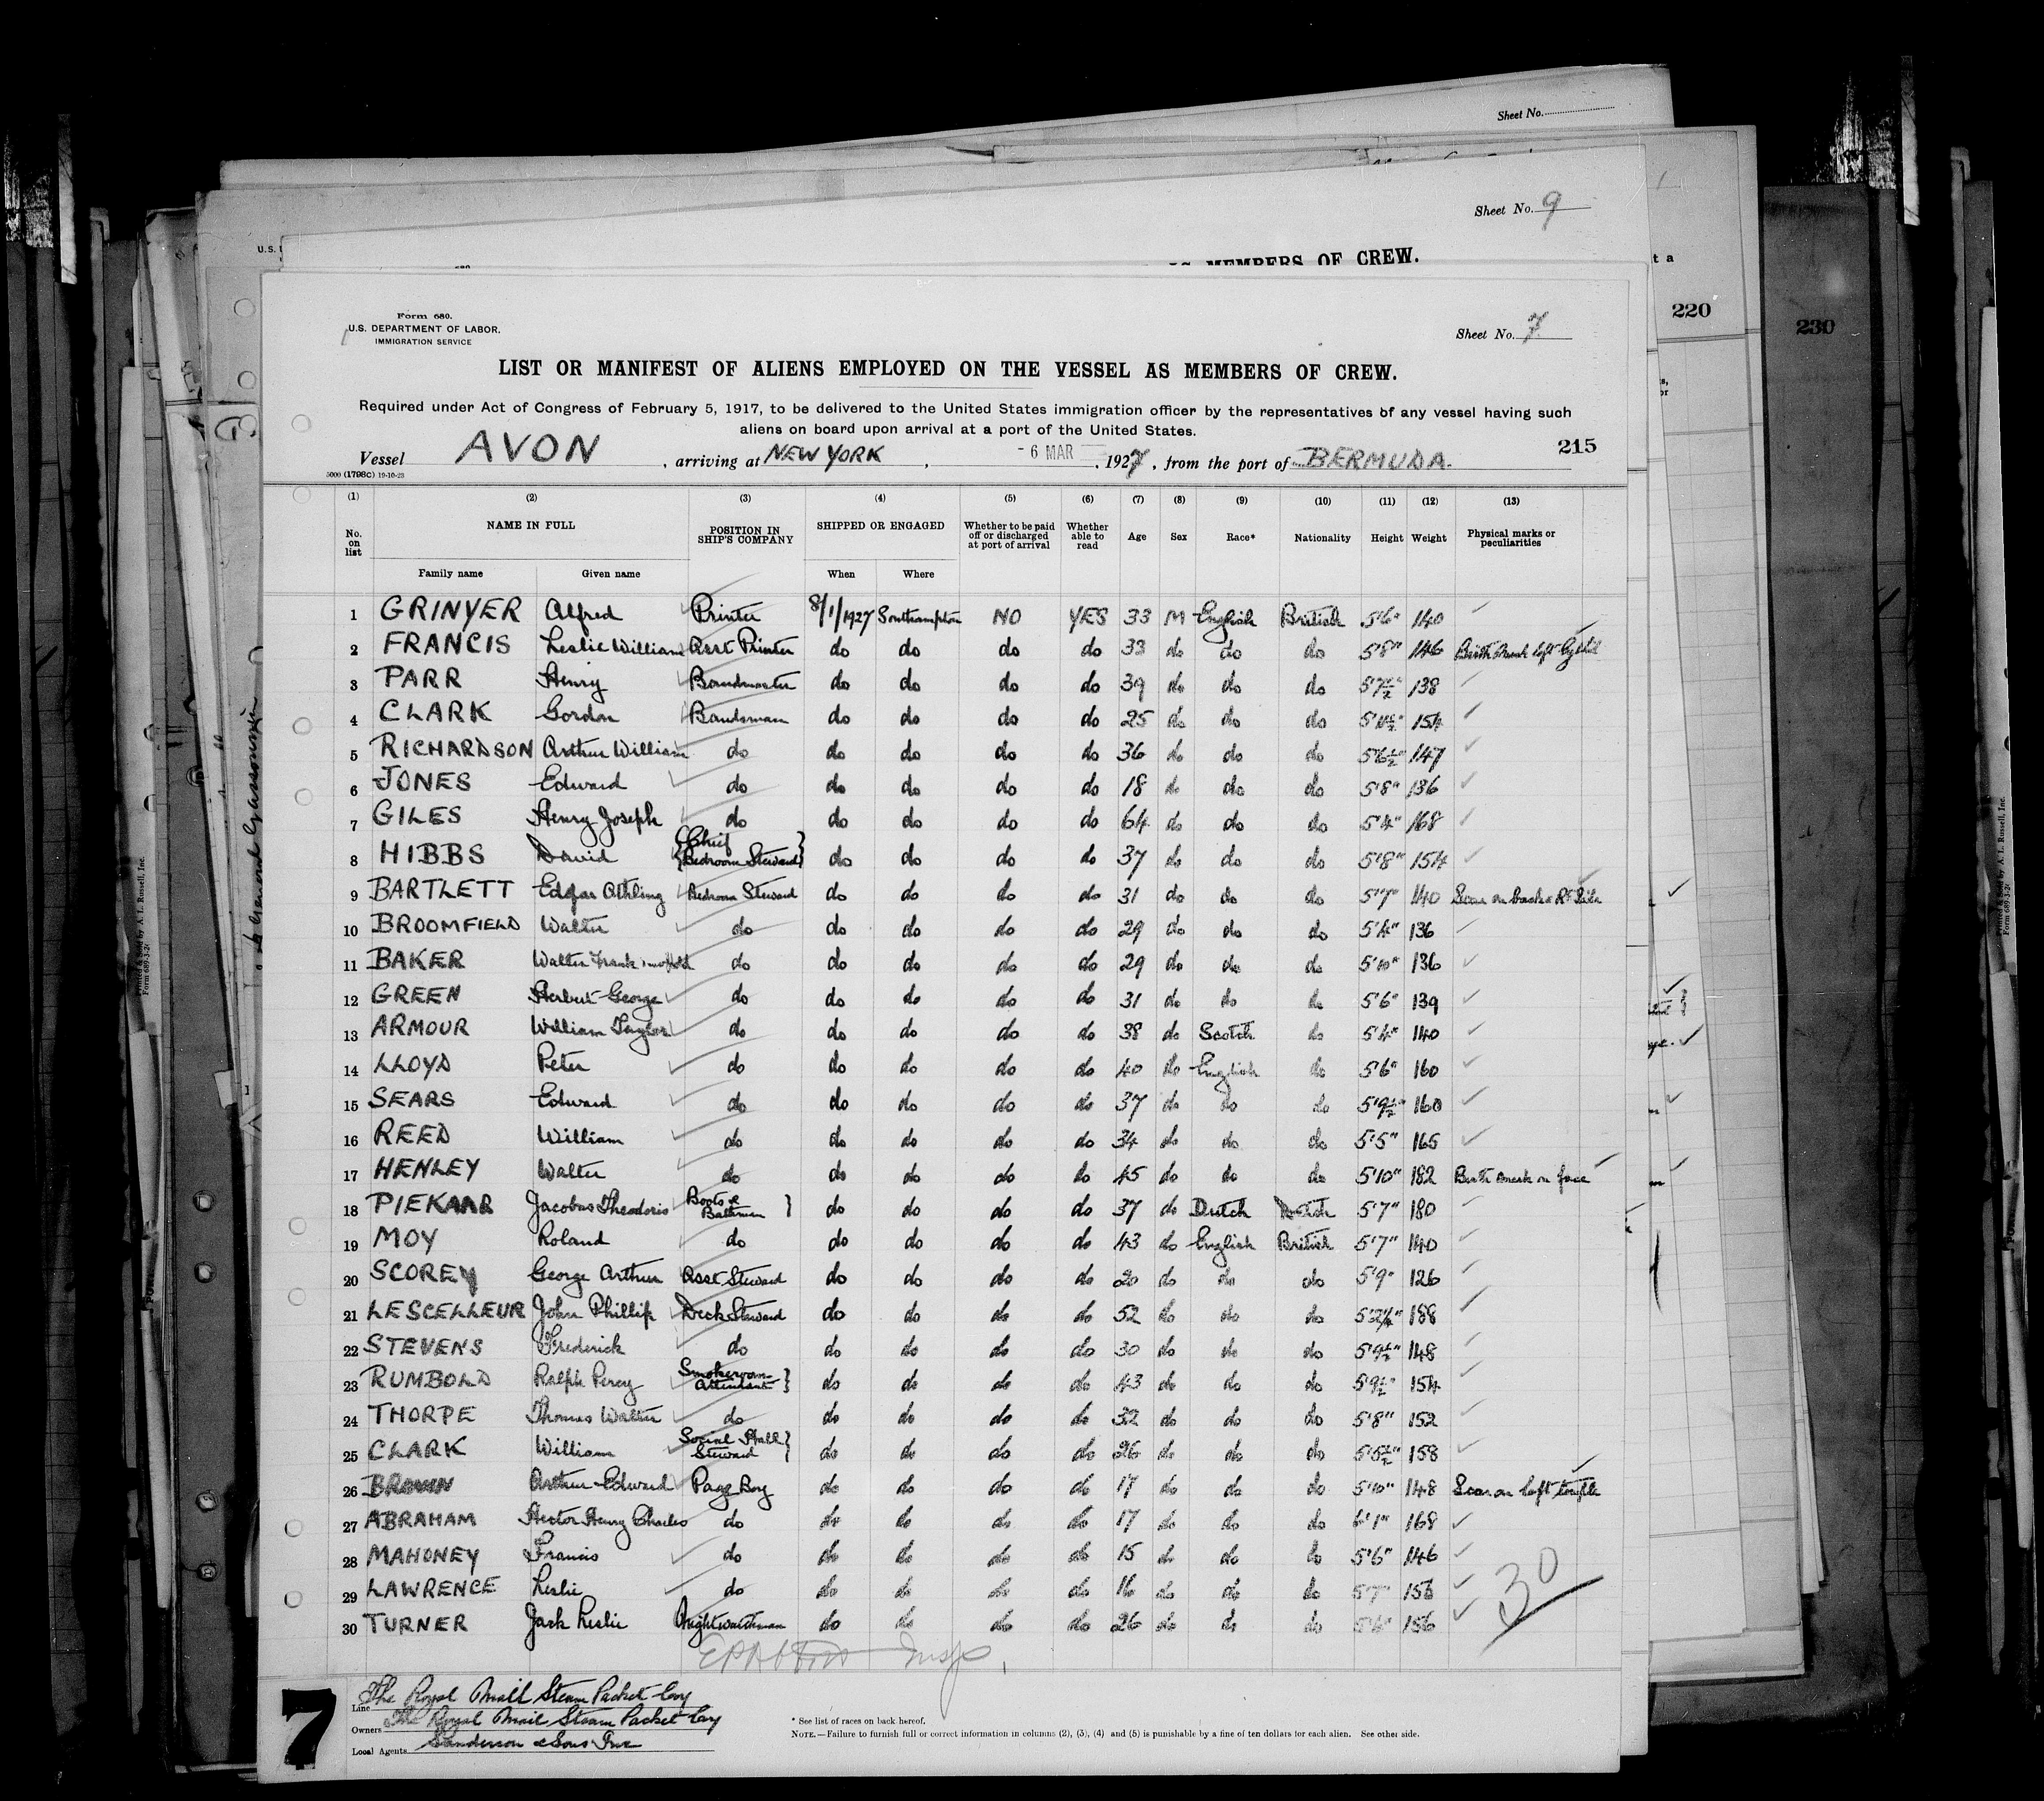 Sheet No.
Sheet No. 9
MEMBERS OF CREW.
220
230
Form 680.
U.S. DEPARTMENT OF LABOR.
IMMIGRATION SERVICE
Sheet No. 7
LIST OR MANIFEST OF ALIENS EMPLOYED ON THE VESSEL AS MEMBERS OF CREW.
Required under Act of Congress of February 5, 1917, to be delivered to the United States immigration officer by the representatives of any vessel having such
aliens on board upon arrival at a port of the United States.
215
Vessel AVON, arriving at NEW YORK, - 6 MAR, 1927, from the port of BERMUDA.
5000 (1798C) 19-10-23
(1) (2) (3) (4) (5) (6) (7) (8) (9) (10) (11) (12) (13)
No. on list NAME IN FULL POSITION IN SHIP'S COMPANY SHIPPED OR ENGAGED Whether to be paid off or discharged at port of arrival Whether able to read Age Sex Race* Nationality Height Weight Physical marks or peculiarities
Family name Given name When Where
1 GRINYER Alfred Printer 8/1/1927 Southampton NO YES 33 M English British 5'6" 140
2 FRANCIS Leslie William Asst Printer do do do do 33 do do do 5'8" 146 Birth Mark left
3 PARR Henry Bandmaster do do do do 39 do do do 5'7½" 138
4 CLARK Gordon Bandsman do do do do 25 do do do 154
5 RICHARDSON Arthur William do do do do do 36 do do do 5'6½" 147
6 JONES Edward do do do do do 18 do do do 5'8" 136
7 GILES Henry Joseph do do do do do 64 do do do 5'4" 168
8 HIBBS David Chief Bedroom Steward do do do do 37 do do do 5'8" 154
9 BARTLETT Edgar Bedroom Steward do do do do 31 do do do 5'7" 140 Scar on back & Rt Side
10 BROOMFIELD Walter do do do do do 29 do do do 5'4" 136
11 BAKER Walter Frank do do do do do 29 do do do 5'10" 136
12 GREEN Herbert George do do do do do 31 do do do 5'6" 139
13 ARMOUR William Taylor do do do do do 38 do Scotch do 5'4" 140
14 LLOYD Peter do do do do do 40 do English do 5'6" 160
15 SEARS Edward do do do do do 37 do do do 5'9½" 160
16 REED William do do do do do 34 do do do 5'5" 165
17 HENLEY Walter do do do do do 45 do do do 5'10" 182 Birth mark on face
18 PIEKAAR Jacobus Theodoris Boots & Bathman do do do do 37 do Dutch Dutch 5'7" 180
19 MOY Roland do do do do do 43 do English British 5'7" 140
20 SCOREY George Arthur Asst Steward do do do do 20 do do do 5'9" 126
21 LESCELLEUR John Phillip Deck Steward do do do do 52 do do do 188
22 STEVENS Frederick do do do do do 30 do do do 5'9½" 148
23 RUMBOLD Ralph Percy Smokeroom Attendant do do do do 43 do do do 5'9½" 154
24 THORPE Thomas Walter do do do do do 32 do do do 5'8" 152
25 CLARK William Social Hall Steward do do do do 26 do do do 5'5½" 158
26 BROWN Arthur Edward Page Boy do do do do 17 do do do 5'10" 148 Scar on left temple
27 ABRAHAM Hector Henry Charles do do do do do 17 do do do 6'1" 168
28 MAHONEY Francis do do do do do 15 do do do 5'6" 146
29 LAWRENCE Leslie do do do do do 16 do do do 5'7" 156
30 TURNER Jack Leslie Nightwatchman do do do do 26 do do do 5'6" 156
30
Insp
7
Line The Royal Mail Steam Packet Coy
Owners The Royal Mail Steam Packet Coy
Local Agents Sanderson & Sons Inc
* See list of races on back hereof.
NOTE.—Failure to furnish full or correct information in columns (2), (3), (4) and (5) is punishable by a fine of ten dollars for each alien. See other side.